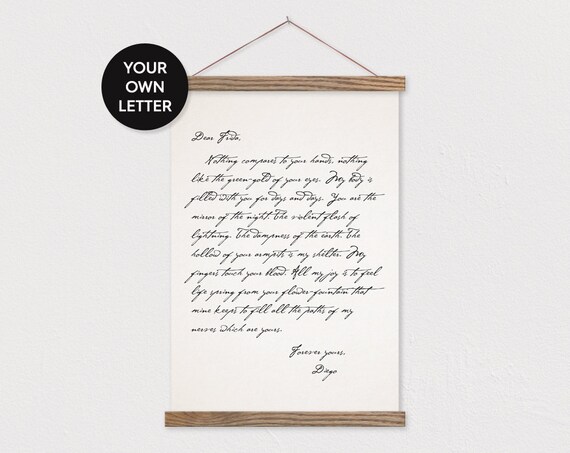 YOUR
OWN
LETTER
Dear Frida,
Nothing compares to your hands, nothing
like the green-gold of your eyes. My body is
filled with you for days and days. You are the
mirror of the night. The violent flash of
lightning. The dampness of the earth. The
hollow of your armpits is my shelter. My
fingers touch your blood. All my joy is to feel
life spring from your flower-fountain that
mine keeps to fill all the paths of my
nerves which are yours.
Forever yours,
Diego